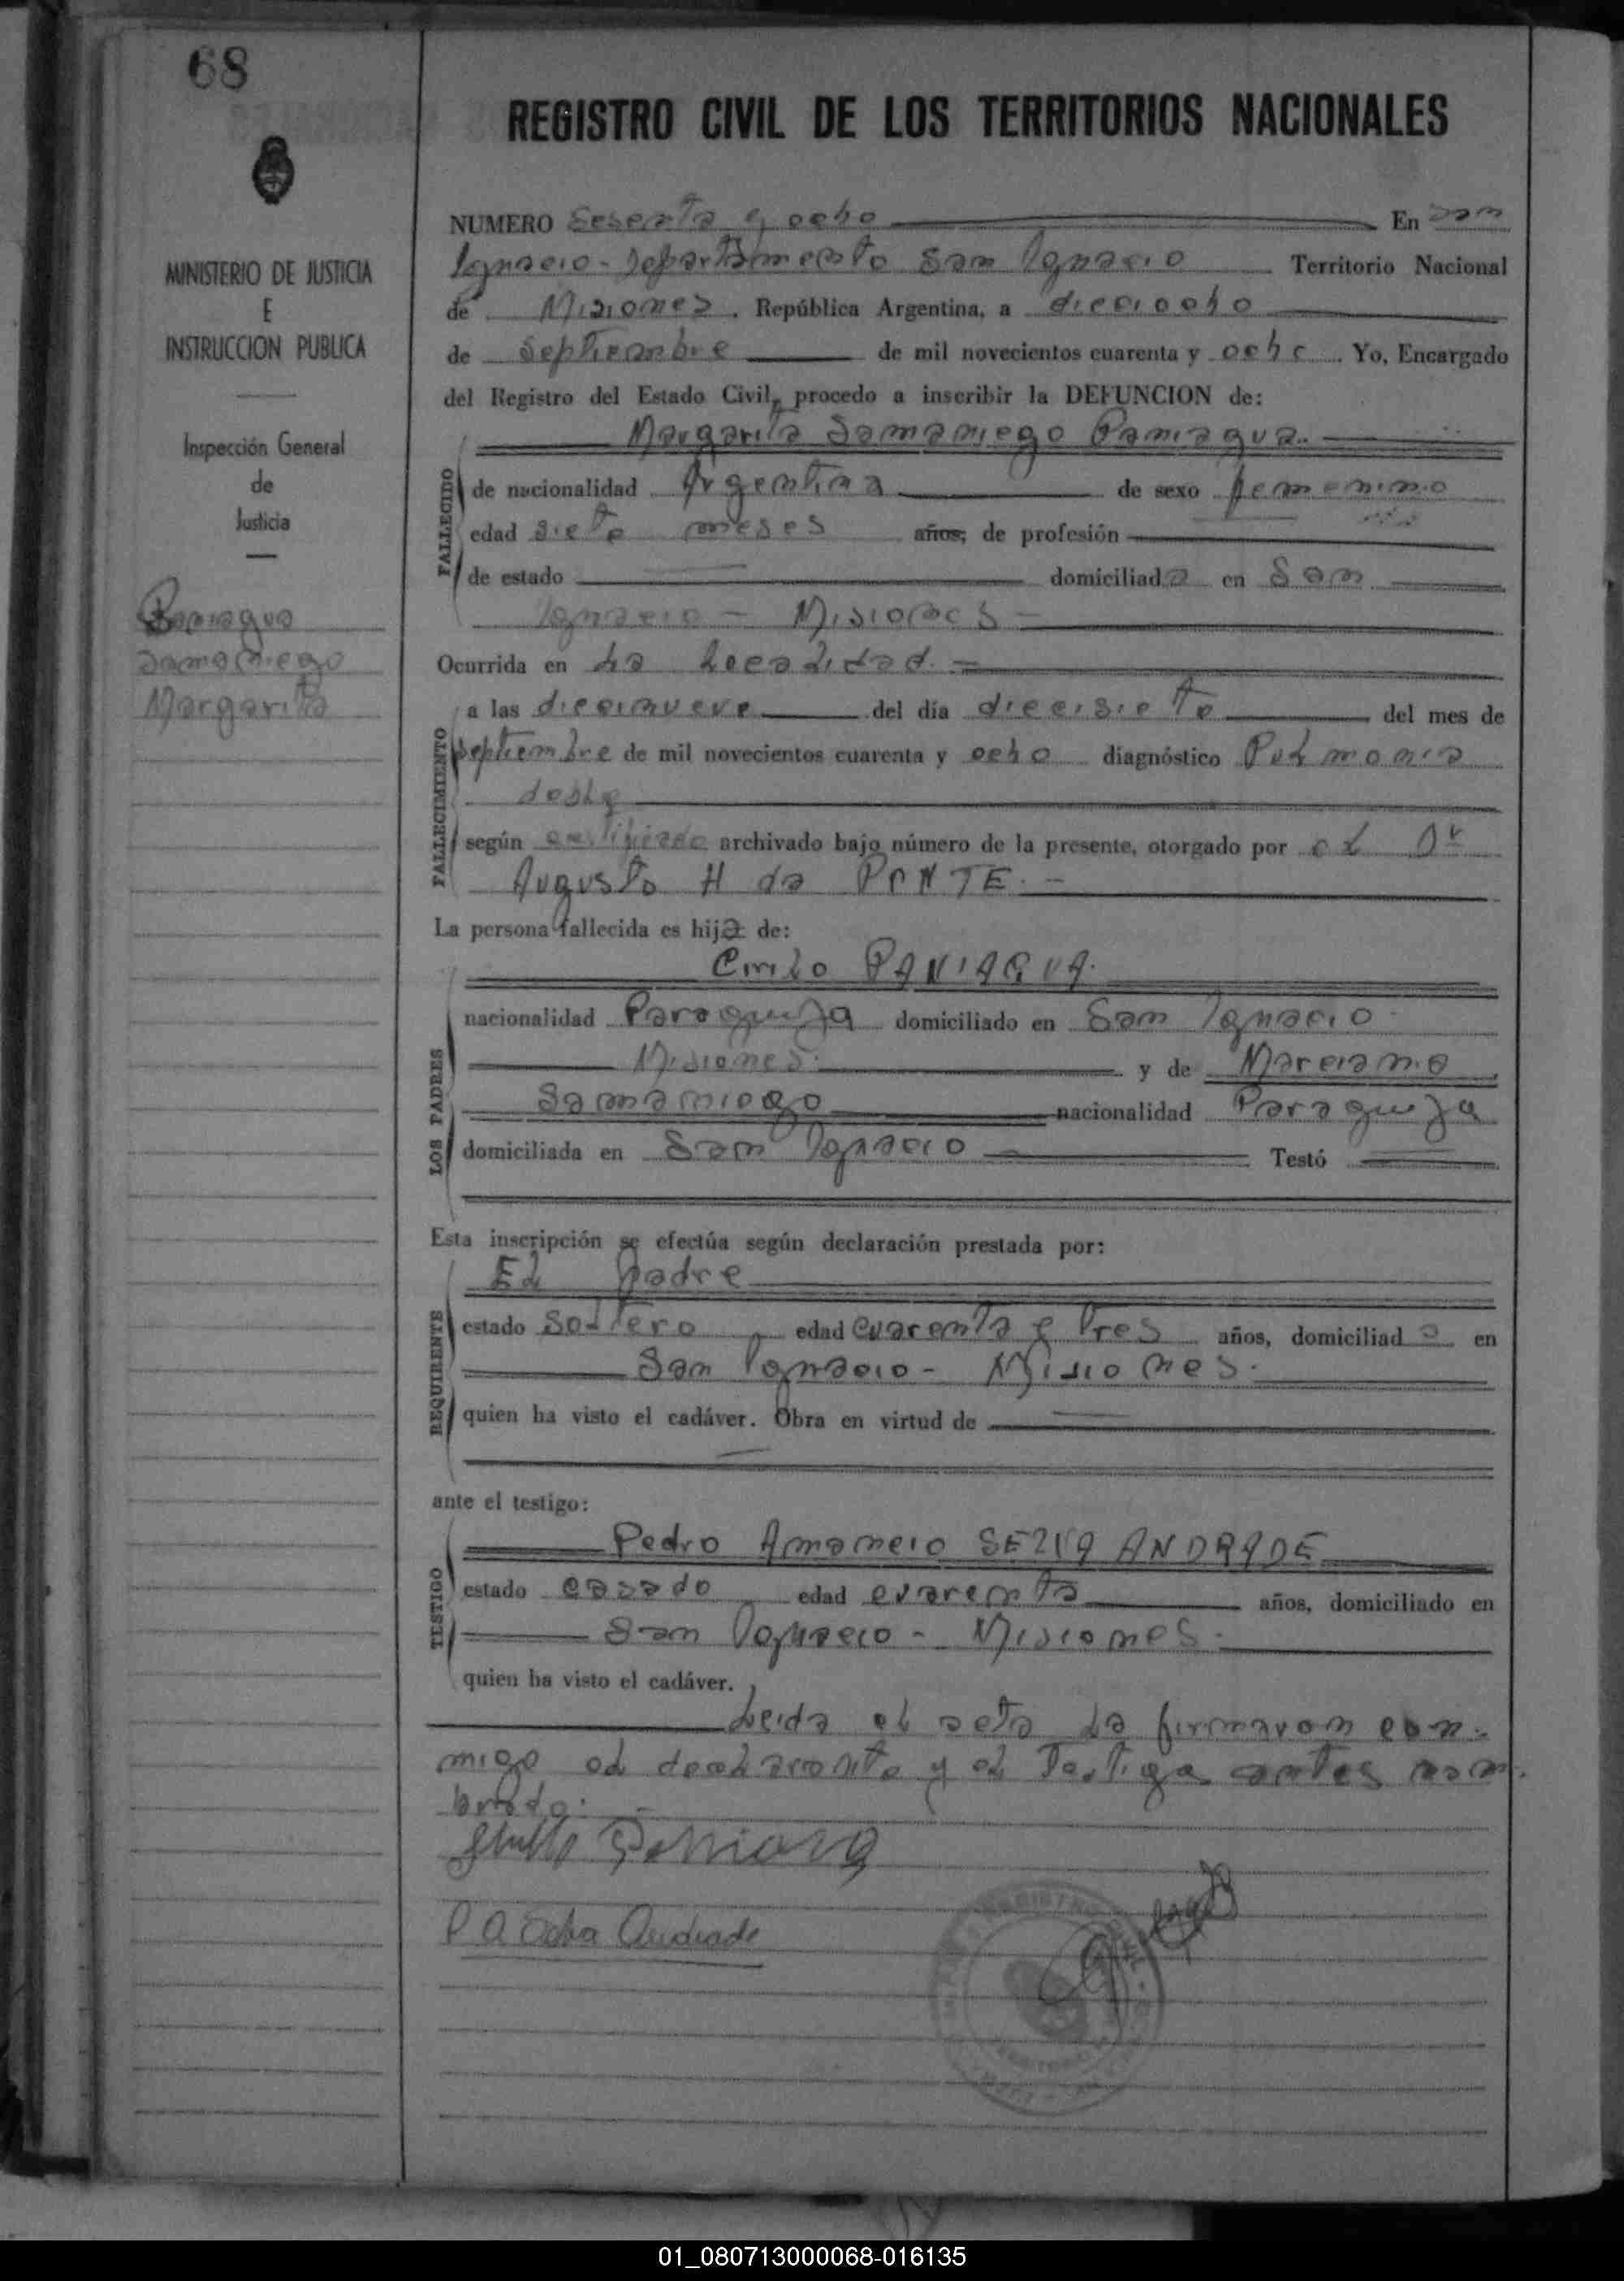 68
MINISTERIO DE JUSTICIA
E
INSTRUCCION PUBLICA
Inspección General
de
Justicia
Paniagua
Samaniego
Margarita
REGISTRO CIVIL DE LOS TERRITORIOS NACIONALES
NUMERO Sesenta y ocho En San
Ignacio - Departamento San Ignacio Territorio Nacional
de Misiones. República Argentina, a dieciocho
de Septiembre de mil novecientos cuarenta y ocho. Yo, Encargado
del Registro del Estado Civil, procedo a inscribir la DEFUNCION de:
Margarita Samaniego Paniagua.
FALLECIDO
de nacionalidad Argentina de sexo femenino
edad siete meses años; de profesión
de estado domiciliada en San
Ignacio - Misiones -
Ocurrida en La Localidad. -
FALLECIMIENTO
a las diecinueve del día diecisiete del mes de
septiembre de mil novecientos cuarenta y ocho diagnóstico Pulmonia
doble
según certificado archivado bajo número de la presente, otorgado por el Dr
Augusto H da PONTE. -
La persona fallecida es hija de:
LOS PADRES
Emilo PANIAGUA.
nacionalidad Paraguya domiciliado en San Ignacio -
Misiones. y de Marciana
Samaniego nacionalidad Paraguya
domiciliada en San Ignacio Testó
Esta inscripción se efectúa según declaración prestada por:
REQUIRENTE
El padre
estado soltero, edad cuarenta e tres años, domiciliado en
San Ignacio - Misiones.
quien ha visto el cadáver. Obra en virtud de
ante el testigo:
TESTIGO
Pedro Amancio SELVA ANDRADE
estado casado edad cuarenta años, domiciliado en
San Ignacio - Misiones.
quien ha visto el cadáver.
Leida el acta la firmaron con-
migo el declarante y el Testigo antes nom-
brado. -
P A Selva Andrade
01_080713000068-016135